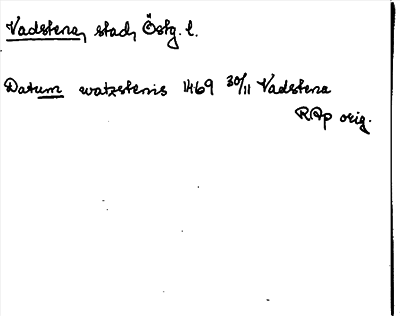 Vadstena, stad, Östg. l.
Datum watzstenis 1469 30/11 Vadstena
RAp orig.